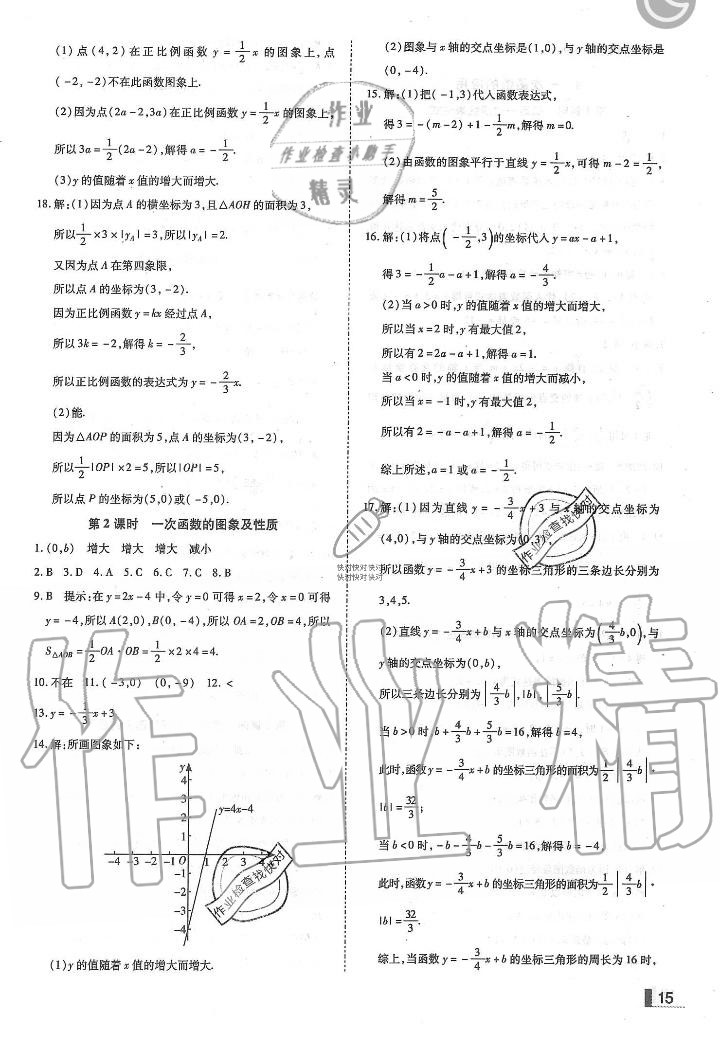 (1)点(4,2)在正比例函数 y=1/2x 的图象上,点
(-2,-2)不在此函数图象上.
(2)因为点(2a-2,3a)在正比例函数 y=1/2x 的图象上,
所以3a=1/2(2a-2),解得a=-1/2.
(3)y的值随着x值的增大而增大.
18.解:(1)因为点A的横坐标为3,且△AOH的面积为3,
所以1/2×3×|yA|=3,所以|yA|=2.
又因为点A在第四象限,
所以点A的坐标为(3,-2).
因为正比例函数y=kx经过点A,
所以3k=-2,解得k=-2/3,
所以正比例函数的表达式为y=-2/3x.
(2)能.
因为△AOP的面积为5,点A的坐标为(3,-2),
所以1/2|OP|×2=5,所以|OP|=5,
所以点P的坐标为(5,0)或(-5,0).
第2课时 一次函数的图象及性质
1.(0,b) 增大 增大 增大 减小
2.B 3.D 4.A 5.C 6.C 7.C 8.B
9.B 提示:在y=2x-4中,令y=0可得x=2,令x=0可得
y=-4,所以A(2,0),B(0,-4),所以OA=2,OB=4,所以
S△AOB=1/2OA·OB=1/2×2×4=4.
10.不在 11.(-3,0) (0,-9) 12.<
13.y=-1/3x+3
14.解:所画图象如下:
y
4
3
2
1
y=4x-4
-4 -3 -2 -1 0 1 2 3 4
-1
-2
-3
-4
(1)y的值随着x值的增大而增大.
(2)图象与x轴的交点坐标是(1,0),与y轴的交点坐标是
(0,-4).
15.解:(1)把(-1,3)代入函数表达式,
得3=-(m-2)+1-1/2m,解得m=0.
(2)由函数的图象平行于直线y=1/2x,可得m-2=1/2,
解得m=5/2.
16.解:(1)将点(-1/2,3)的坐标代入y=ax-a+1,
得3=-1/2a-a+1,解得a=-4/3.
(2)当a>0时,y的值随着x值的增大而增大,
所以当x=2时,y有最大值2,
所以有2=2a-a+1,解得a=1.
当a<0时,y的值随着x值的增大而减小,
所以当x=-1时,y有最大值2,
所以有2=-a-a+1,解得a=-1/2.
综上所述,a=1或a=-1/2.
17.解:(1)因为直线y=-3/4x+3与x轴的交点坐标为
(4,0),与y轴的交点坐标为(0,3),
所以函数y=-3/4x+3的坐标三角形的三条边长分别为
3,4,5.
(2)直线y=-3/4x+b与x轴的交点坐标为(4/3b,0),与
y轴的交点坐标为(0,b),
所以三条边长分别为|4/3b|,|b|,|5/3b|.
当b>0时,b+4/3b+5/3b=16,解得b=4,
此时,函数y=-3/4x+b的坐标三角形的面积为1/2|4/3b|·
|b|=32/3;
当b<0时,-b-4/3b-5/3b=16,解得b=-4,
此时,函数y=-3/4x+b的坐标三角形的面积为1/2|4/3b|·
|b|=32/3.
综上,当函数y=-3/4x+b的坐标三角形的周长为16时,
15
作业
作业检查小助手
精灵
快对快对快对
快对快对快对
作业检查找快对
作业检查找快对
作业精